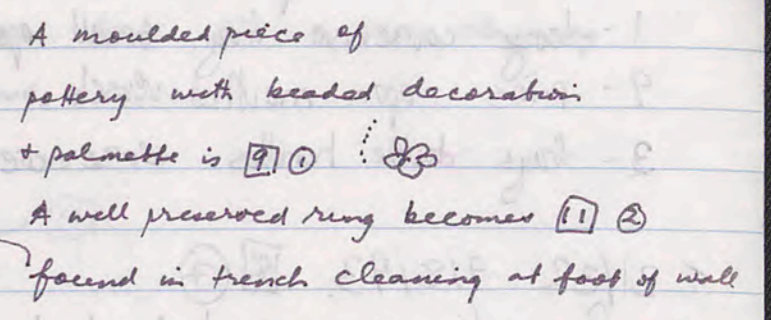 A moulded piece of
pottery with beaded decoration
+ palmette is 9 1
A well preserved ring becomes 11 2
found in trench cleaning at foot of wall